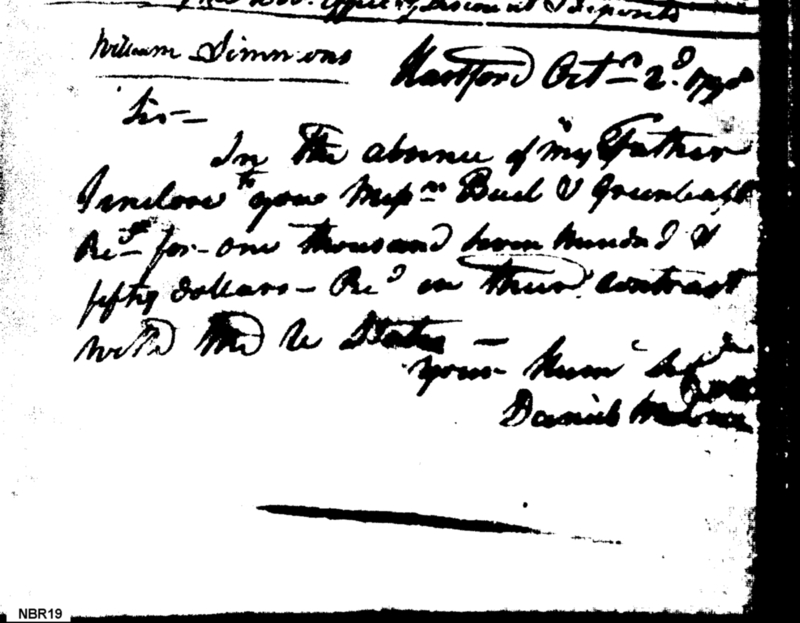 Office of Discount & Deposit
William Simmons
Hartford Octr 2d 1798
Sir—
In the absence of my Father
I inclose to you Messrs Buel & Greenleafs
Rect for one thousand seven hundred &
fifty dollars — Recd on their contract
with the U States —
your Humle Sert
Daniel
NBR19